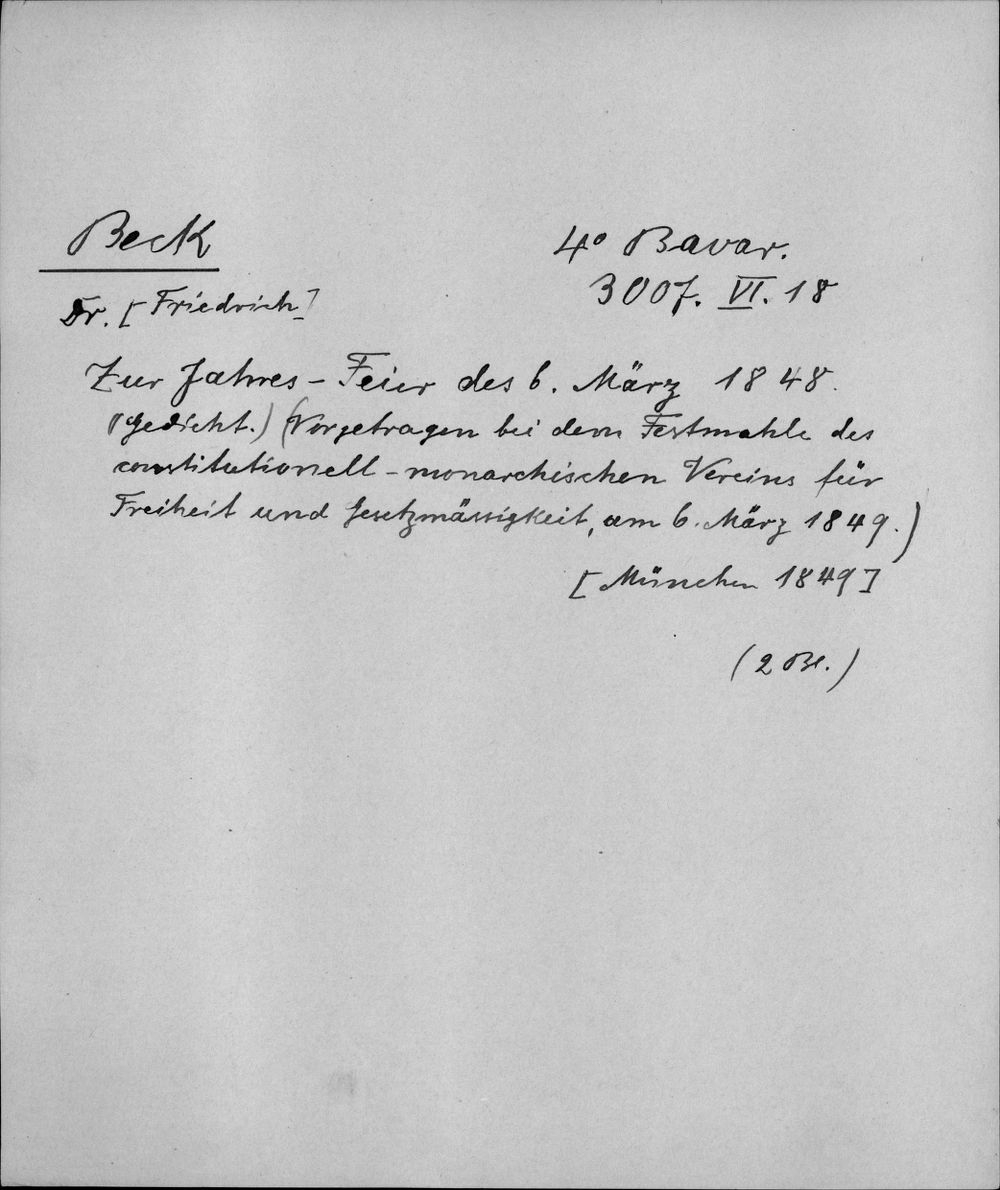 Beck
4° Bavar.
3007. VI. 18
Dr. [Friedrich]
Zur Jahres-Feier des 6. März 1848.
(Gedicht.) (Vorgetragen bei dem Festmahle des
constitutionell-monarchischen Vereins für
Freiheit und Gesetzmässigkeit, am 6. März 1849.)
[München 1849]
(2 Bl.)